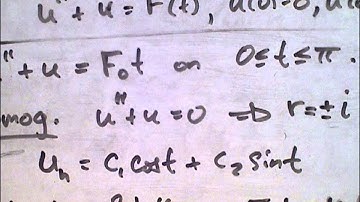 u" + u = F(t), u(0)=0, u
" + u = F₀t on 0≤t≤π.
mog. u" + u = 0 ⇒ r=±i
uₕ = C₁ cost + C₂ sint